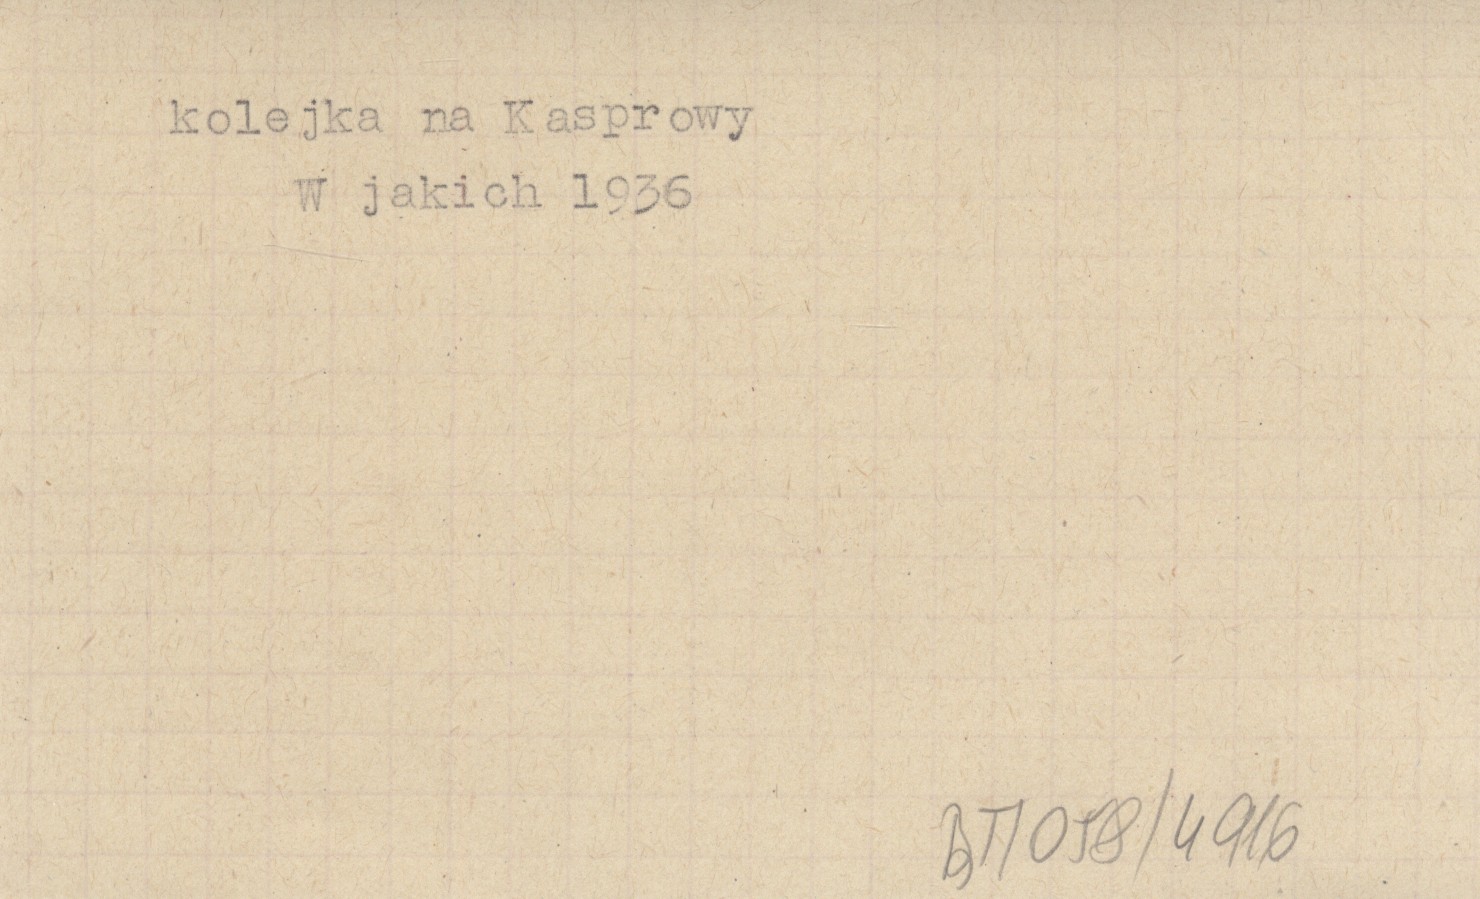 kolejka na Kasprowy
W jakich 1936
BT/058/4916